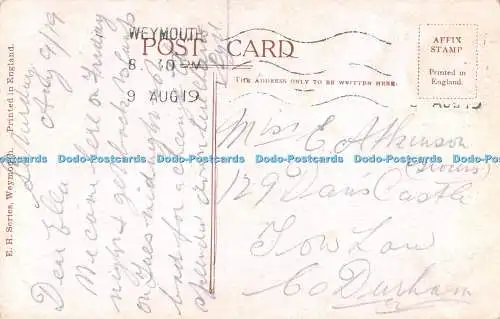 WEYMOUTH
8. 30 PM
9 AUG 19
POST CARD
THE ADDRESS ONLY TO BE WRITTEN HERE.
AFFIX
STAMP
Printed in
England.
AUG 19
E. H. Series, Weymouth. Printed in England.
Saturday
Aug 9/19
Dear Ellen
We came here on Friday
night & get back
on Tues midnight
bad for a
splendid
Miss E. Atkinson
129 Dans Castle
Tow Law
Co Durham
Dodo-Postcards Dodo-Postcards Dodo-Postcards Dodo-Postcards Dodo-Postcards Dodo-Postcards